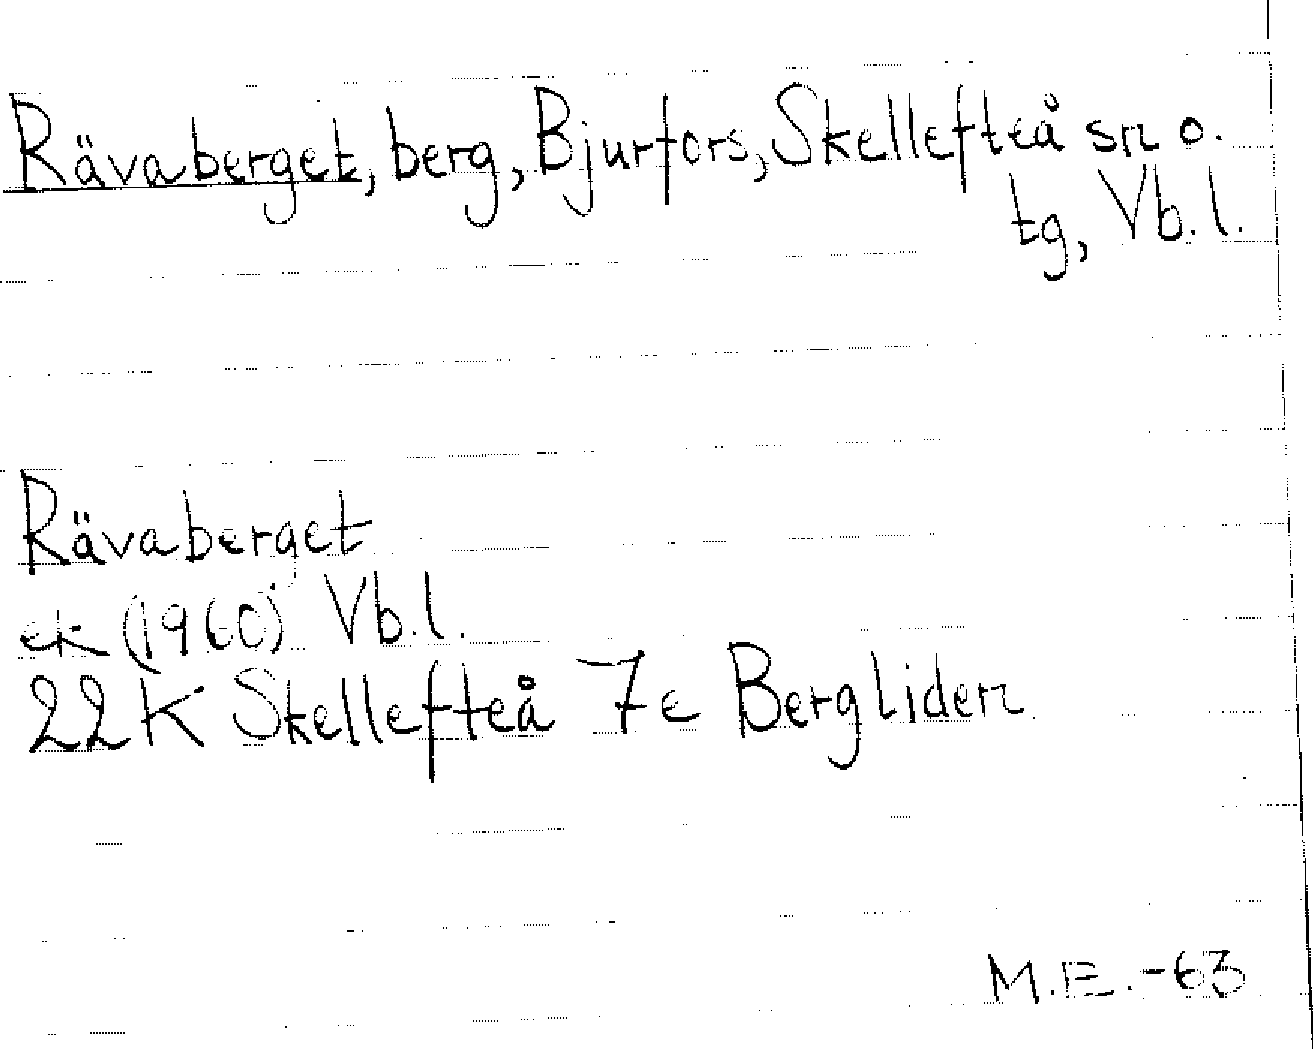 Rävaberget, berg, Bjurfors, Skellefteå sn o.
tg, Vb. l.
Rävaberget
ek (1960) Vb. l.
22K Skellefteå 7e Bergliden
M.E.-63